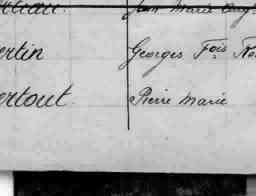 Jean Marie
ertin Georges Fois
ertout Pierre Marie